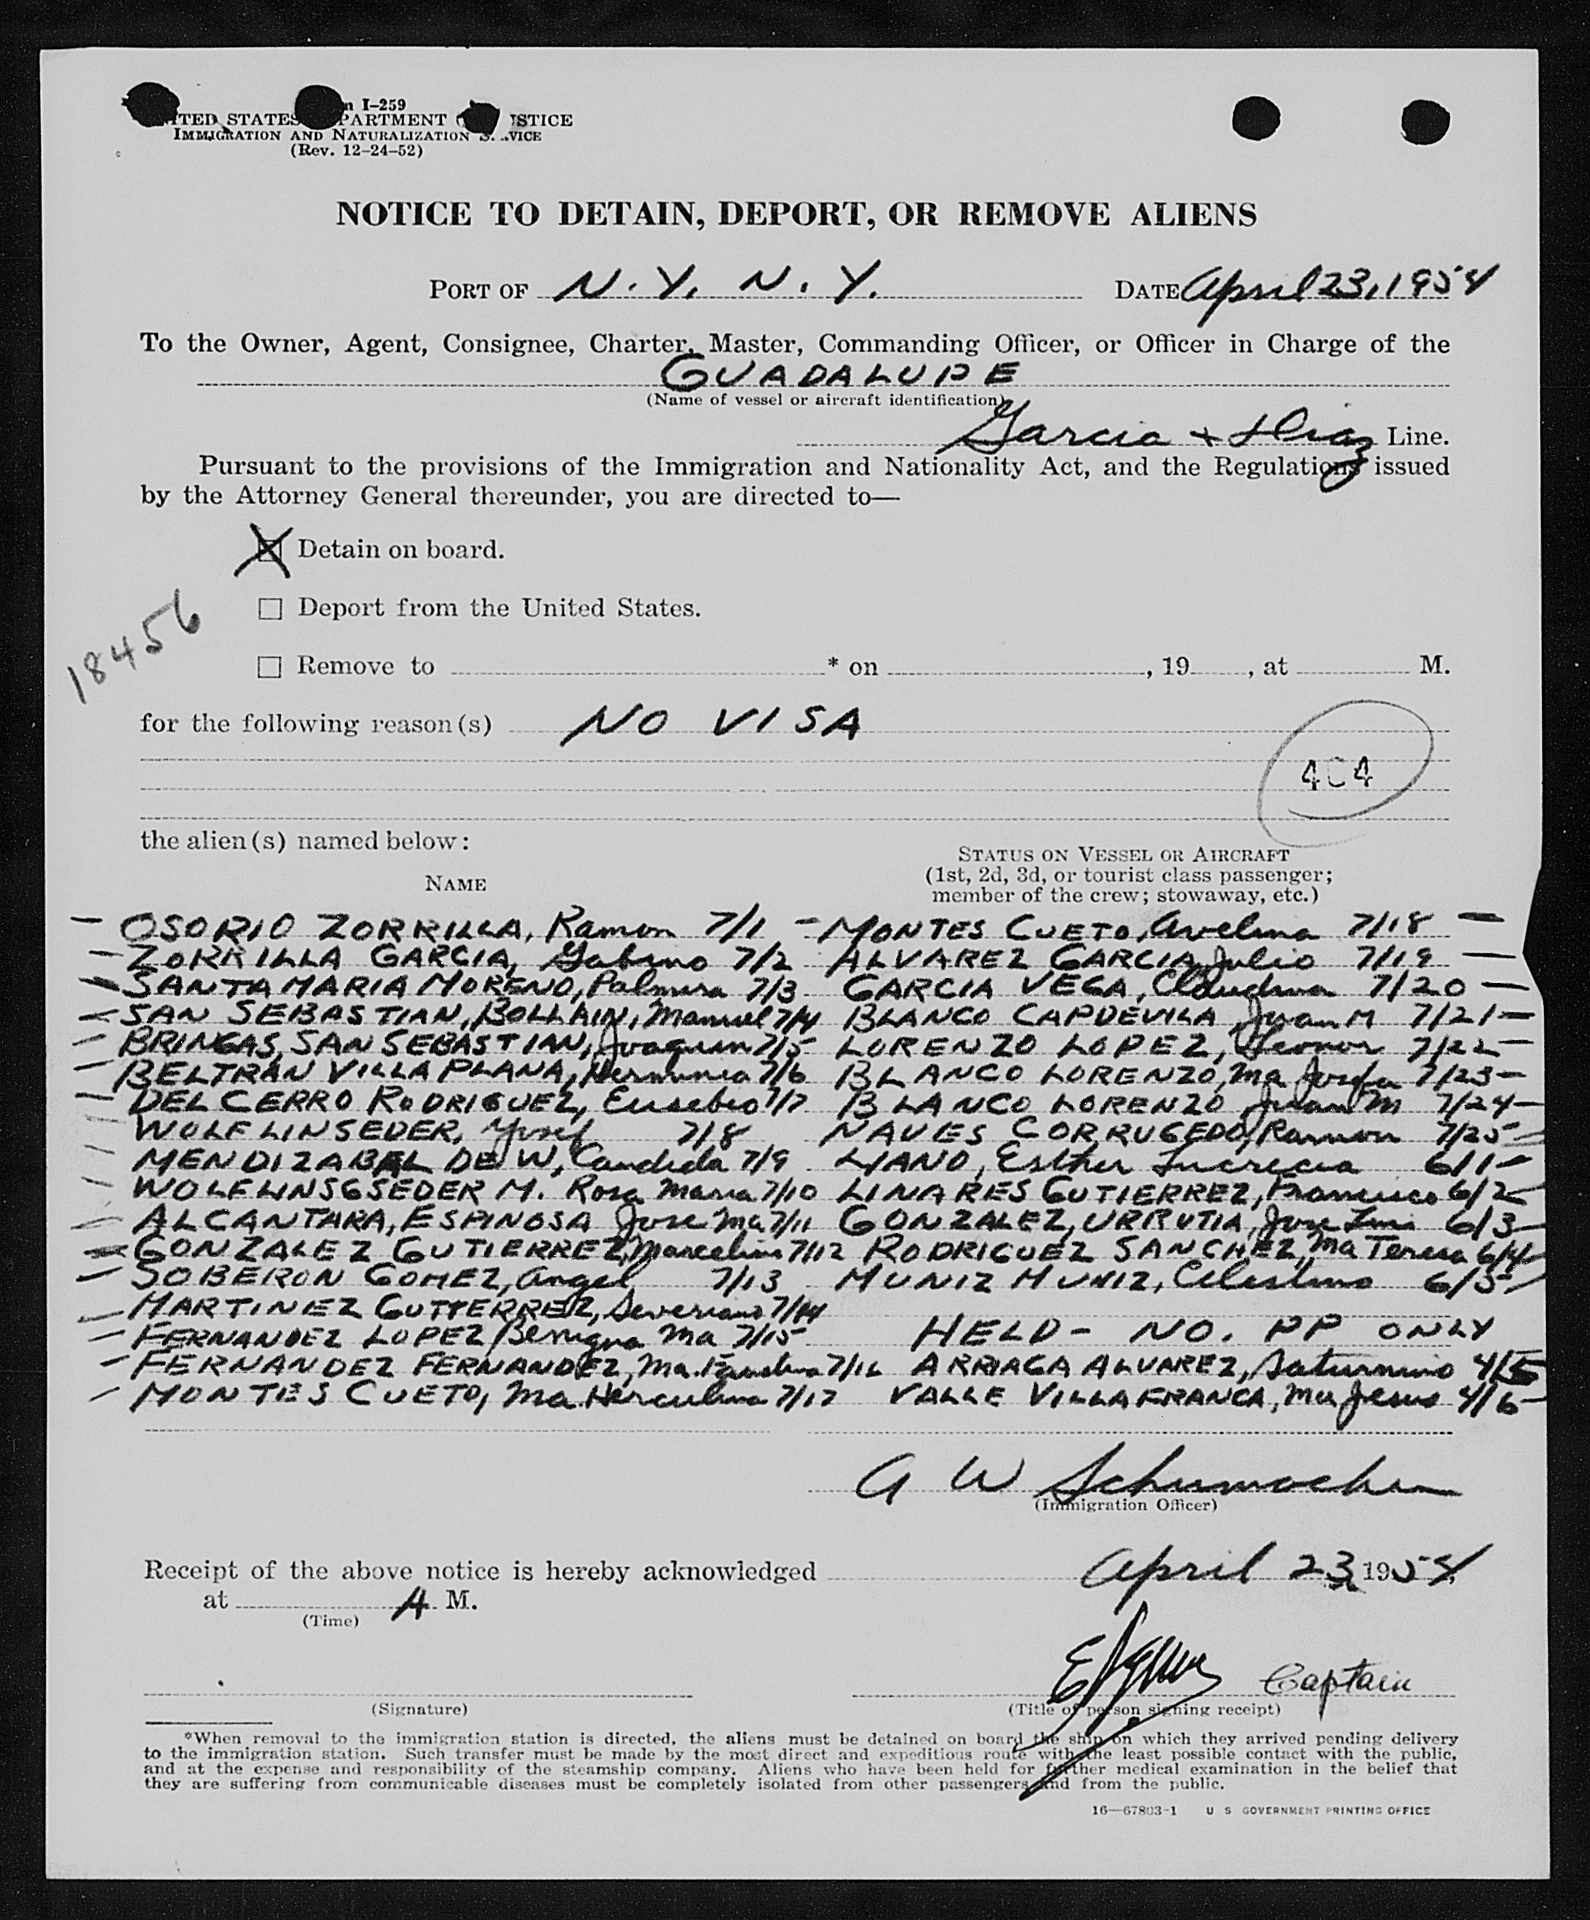 I-259
UNITED STATES DEPARTMENT OF JUSTICE
IMMIGRATION AND NATURALIZATION SERVICE
(Rev. 12-24-52)
NOTICE TO DETAIN, DEPORT, OR REMOVE ALIENS
PORT OF N.Y. N.Y. DATE April 23, 1954
To the Owner, Agent, Consignee, Charter, Master, Commanding Officer, or Officer in Charge of the
GUADALUPE
(Name of vessel or aircraft identification)
Garcia + Diaz Line.
Pursuant to the provisions of the Immigration and Nationality Act, and the Regulations issued
by the Attorney General thereunder, you are directed to—
X Detain on board.
☐ Deport from the United States.
18456
☐ Remove to * on , 19 , at M.
for the following reason(s) NO VISA
404
the alien(s) named below:
NAME
STATUS ON VESSEL OR AIRCRAFT
(1st, 2d, 3d, or tourist class passenger;
member of the crew; stowaway, etc.)
— OSORIO ZORRILLA, Ramon 7/1 — MONTES CUETO, Avelina 7/18 —
— ZORRILLA GARCIA, Gabino 7/2 ALVAREZ GARCIA Julio 7/19 —
— SANTAMARIA MORENO, Palmira 7/3 GARCIA VEGA, Claudina 7/20 —
— SAN SEBASTIAN, BOLLAIN, Manuel 7/4 BLANCO CAPDEVILA, Juan M 7/21 —
— BRINGAS, SAN SEBASTIAN, Joaquin 7/5 LORENZO LOPEZ, Leonor 7/22 —
— BELTRAN VILLA PLANA, Herminia 7/6 BLANCO LORENZO, Ma Josefa 7/23 —
— DEL CERRO RODRIGUEZ, Eusebio 7/7 BLANCO LORENZO Juan M 7/24 —
— WOLFLINSEDER, Josef 7/8 NAVES CORRUGEDO, Ramon 7/25 —
— MENDIZABAL DE W, Candida 7/9 LIANO, Esther Lucrecia 6/1 —
— WOLFLINSGSEDER M. Rosa Maria 7/10 LINARES GUTIERREZ, Francisco 6/2 —
— ALCANTARA, ESPINOSA Jose Ma 7/11 GONZALEZ, URRUTIA, Jose Luis 6/3 —
— GONZALEZ GUTIERREZ, Marcelino 7/12 RODRIGUEZ SANCHEZ, Ma Teresa 6/4 —
— SOBERON GOMEZ, Angel 7/13 MUNIZ MUNIZ, Celestino 6/5 —
— MARTINEZ GUTIERREZ, Severiano 7/14
— FERNANDEZ LOPEZ, Benigna Ma 7/15 HELD - NO. PP ONLY
— FERNANDEZ FERNANDEZ, Ma. Faustina 7/16 ARRIAGA ALVAREZ, Saturnino 4/5
— MONTES CUETO, Ma. Herculina 7/17 VALLE VILLAFRANCA, Ma Jesus 4/6 —
A W Schumacher
(Immigration Officer)
Receipt of the above notice is hereby acknowledged April 23, 1954
at A M.
(Time)
Captain
(Signature) (Title of person signing receipt)
*When removal to the immigration station is directed, the aliens must be detained on board the ship on which they arrived pending delivery
to the immigration station. Such transfer must be made by the most direct and expeditious route with the least possible contact with the public,
and at the expense and responsibility of the steamship company. Aliens who have been held for further medical examination in the belief that
they are suffering from communicable diseases must be completely isolated from other passengers and from the public.
16—67803-1 U S GOVERNMENT PRINTING OFFICE